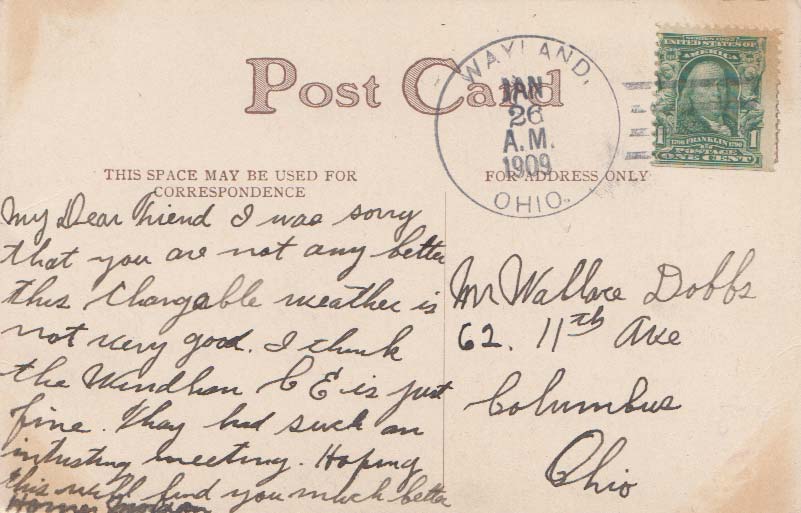 Post Card
WAYLAND,
JAN
26
A.M.
1909
OHIO.
SERIES 1902
UNITED STATES OF
AMERICA
1 1790 FRANKLIN 1790 1
POSTAGE
ONE CENT
THIS SPACE MAY BE USED FOR
CORRESPONDENCE
FOR ADDRESS ONLY
My Dear Friend I was sorry
that you are not any better
this Changable weather is
not very good. I think
the Windham C E is just
fine. Thay had such an
intrusting meeting. Hoping
this will find you much better
Homer
Mr Wallace Dobbs
62. 11th Ave
Columbus
Ohio